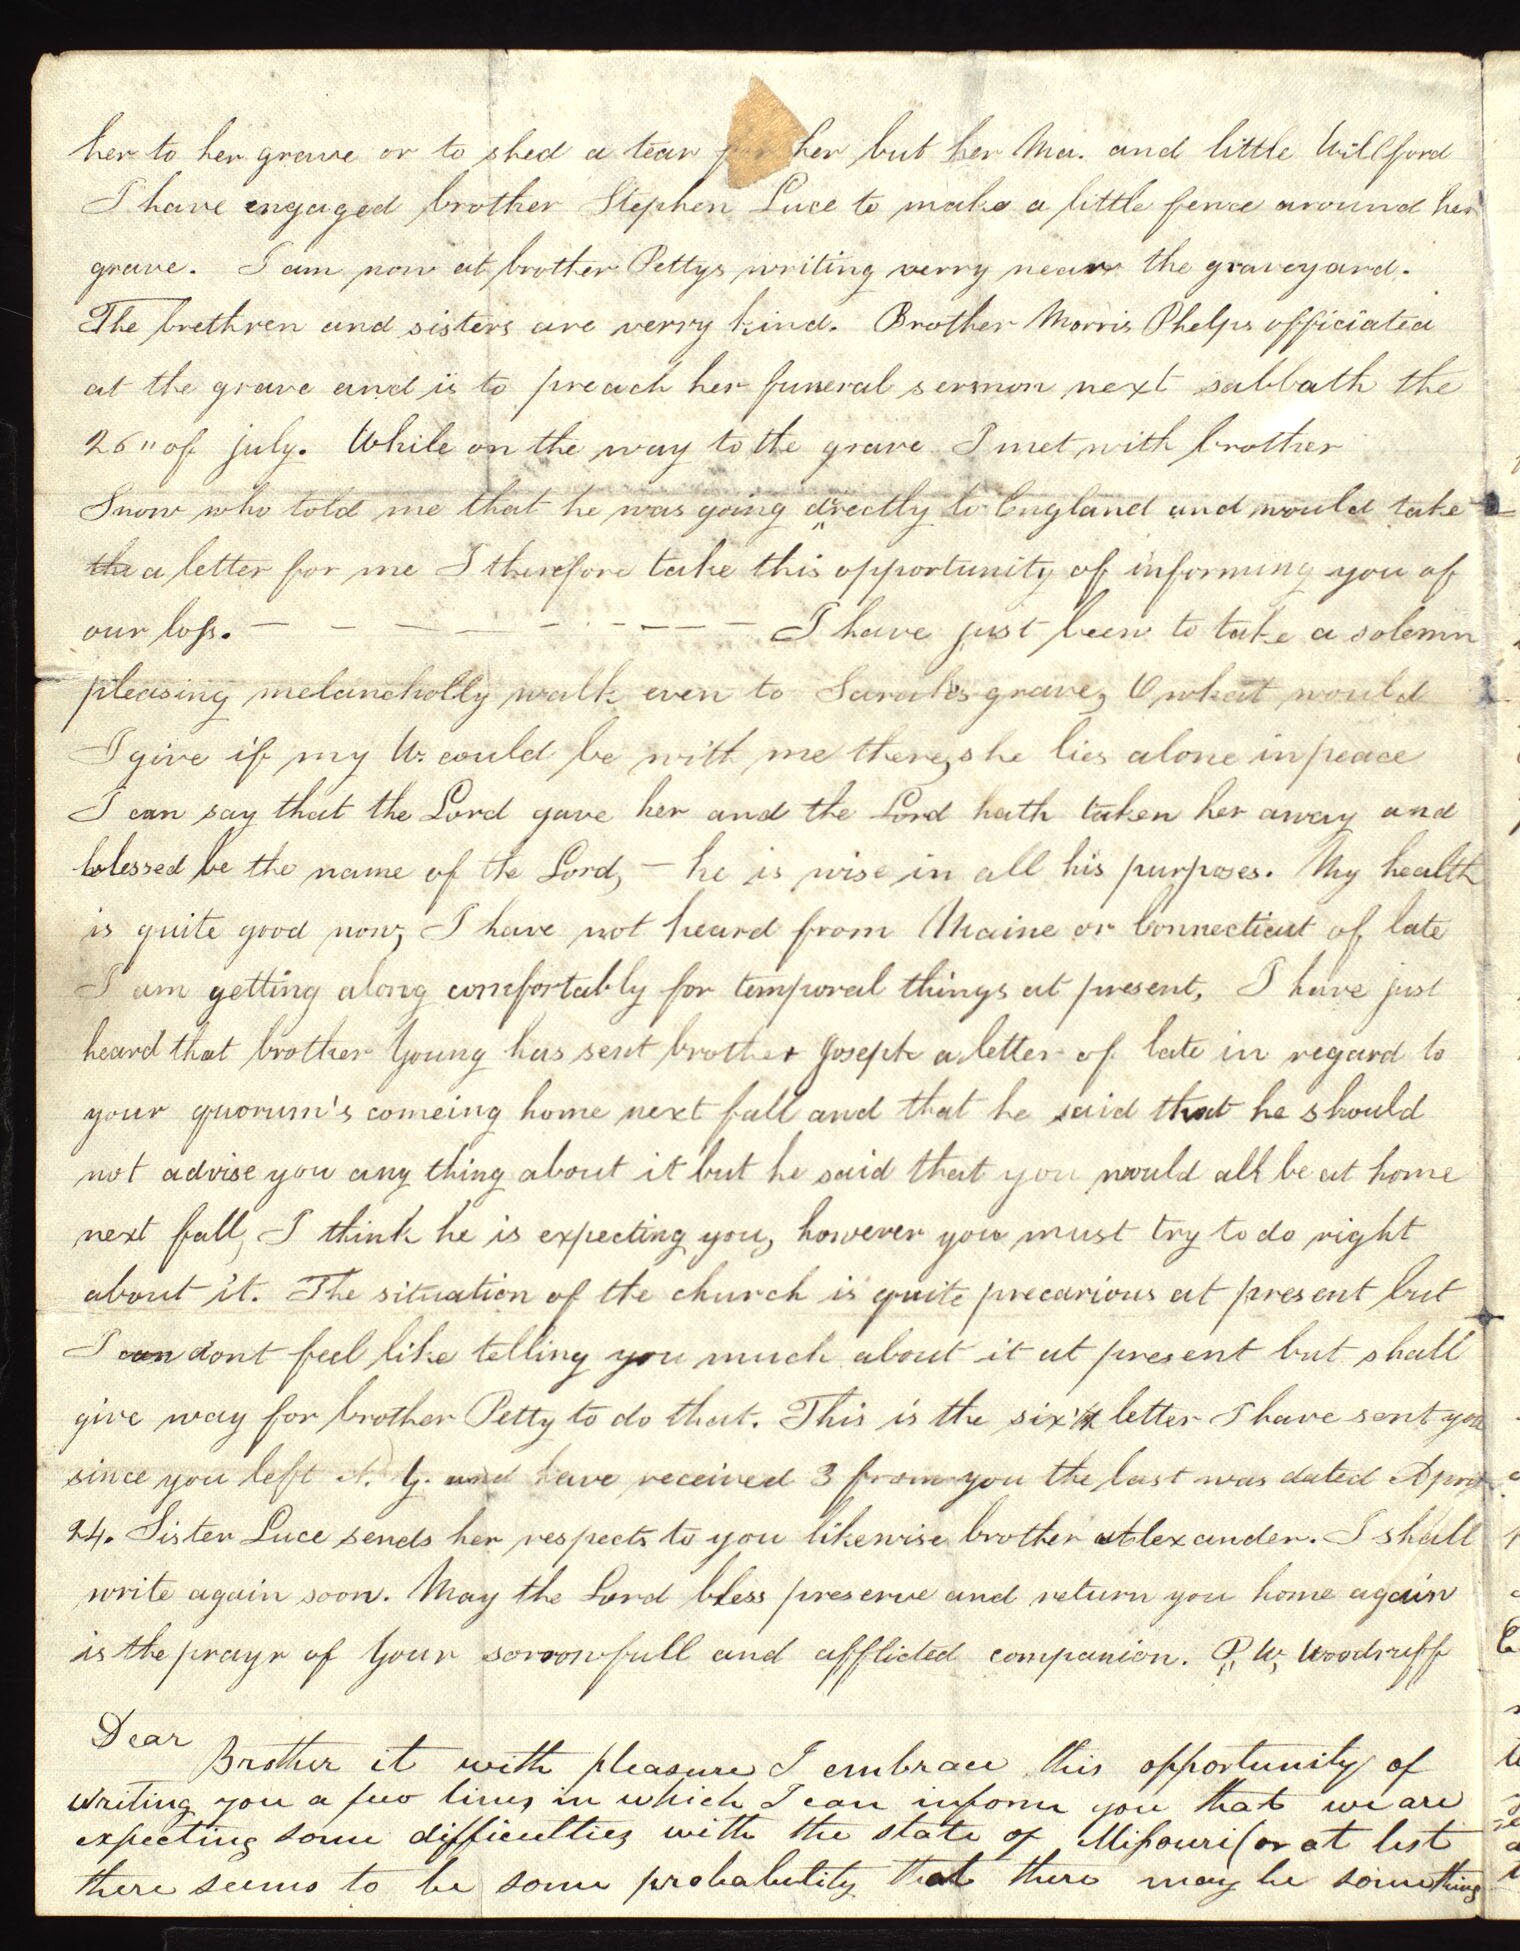 her to her grave or to shed a tear for her but her Ma. and little Willford
I have engaged brother Stephen Luce to make a little fence around her
grave. I am now at brother Pettys writing verry near the graveyard.
The brethren and sisters are verry kind. Brother Morris Phelps officiated
at the grave and is to preach her funeral sermon next sabbath the
26" of july. While on the way to the grave I met with brother
Snow who told me that he was going directly to England and would take
the a letter for me I therefore take this opportunity of informing you of
our loss. — — — — — — — — — I have just been to take a solemn
pleasing melancholly walk even to Sarah's grave, O what would
I give if my W. could be with me there, she lies alone in peace
I can say that the Lord gave her and the Lord hath taken her away and
blessed be the name of the Lord, — he is wise in all his purposes. My health
is quite good now, I have not heard from Maine or Connecticut of late
I am getting along comfortably for temporal things at present, I have just
heard that brother Young has sent brother Joseph a letter of late in regard to
your quorum's comeing home next fall and that he said that he should
not advise you any thing about it but he said that you would all be at home
next fall, I think he is expecting you, however you must try to do right
about it. The situation of the church is quite precarious at present but
I can dont feel like telling you much about it at present but shall
give way for brother Petty to do that. This is the six'th letter I have sent you
since you left N. Y. and have received 3 from you the last was dated Apral
24. Sister Luce sends her respects to you likewise brother Alexander. I shall
write again soon. May the Lord bless preserve and return you home again
is the prayr of Your sorrowfull and afflicted companion. P. W. Woodruff
Dear
Brother it with pleasure I embrace this opportunity of
writing you a few lines in which I can inform you that we are
expecting some difficulties with the state of Missouri (or at lest
there seems to be some probability that there may be something